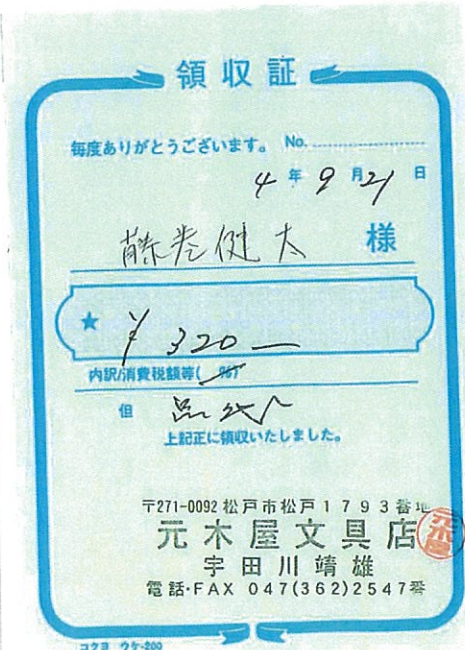 領収証
毎度ありがとうございます。 No.
4年 9月21日
藤巻健太 様
★ ¥320―
内訳/消費税額等( %)
但 品代
上記正に領収いたしました。
〒271-0092 松戸市松戸1793番地
元木屋文具店
宇田川靖雄
電話・FAX 047(362)2547番
コクヨ ウケ-200